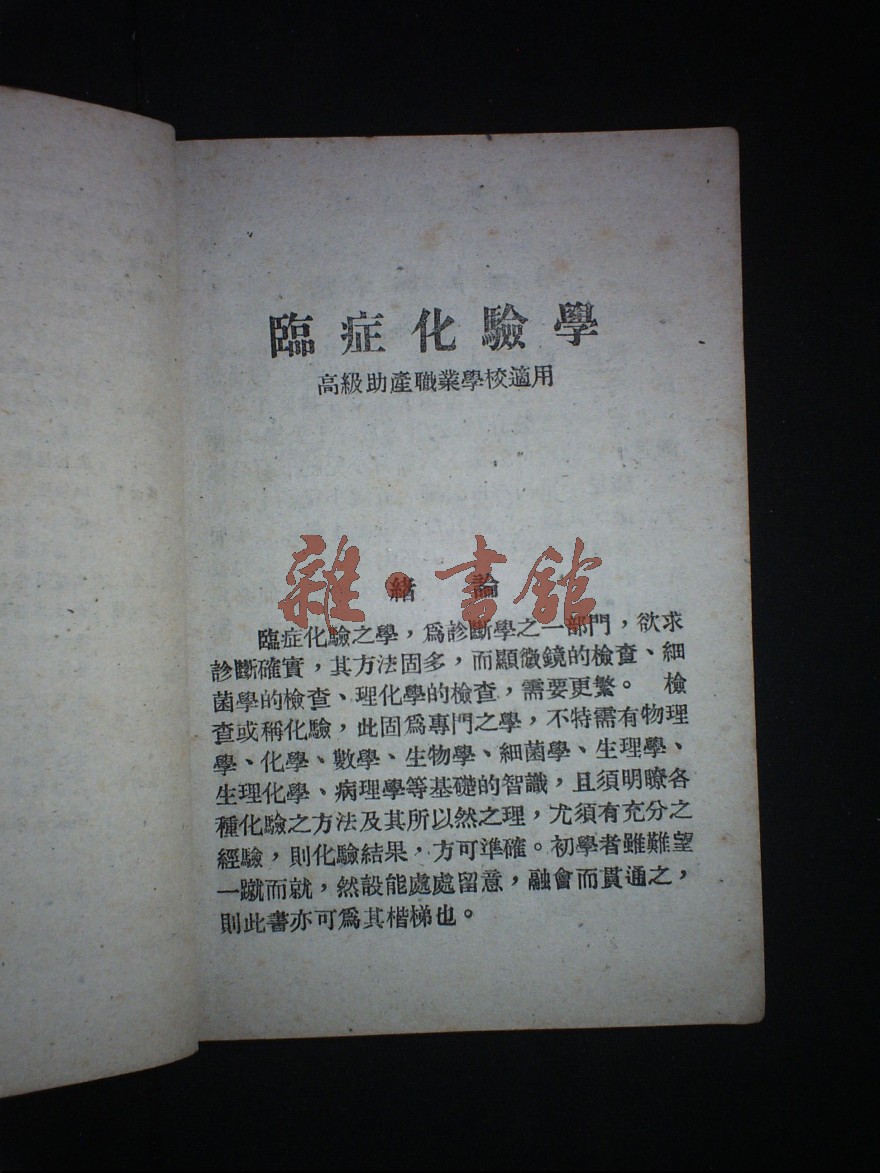 臨症化驗學
高級助產職業學校適用
雜·書館
緒論
臨症化驗之學，爲診斷學之一部門，欲求
診斷確實，其方法固多，而顯微鏡的檢查、細
菌學的檢查、理化學的檢查，需要更繁。 檢
查或稱化驗，此固爲專門之學，不特需有物理
學、化學、數學、生物學、細菌學、生理學、
生理化學、病理學等基礎的智識，且須明瞭各
種化驗之方法及其所以然之理，尤須有充分之
經驗，則化驗結果，方可準確。初學者雖難望
一蹴而就，然設能處處留意，融會而貫通之，
則此書亦可爲其楷梯也。